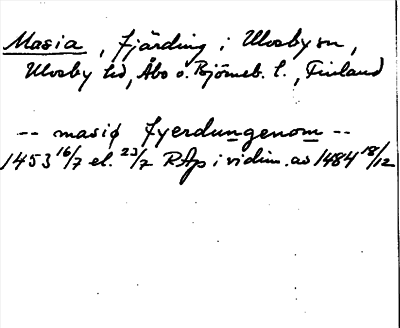 Masia, fjärding i Ulvsby sn,
Ulvsby hd, Åbo o. Björneb. l., Finland
-- masiø fyerdungenom --
1453 16/7 el. 23/7 RAp i vidim. av 1484 18/12